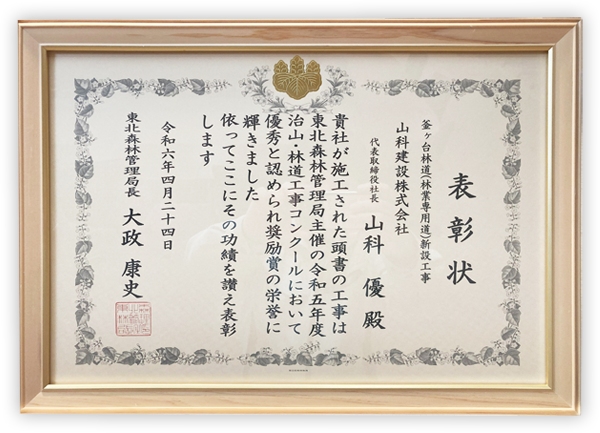 表彰状
釜ヶ台林道(林業専用道)新設工事
山科建設株式会社
代表取締役社長 山科 優 殿
貴社が施工された頭書の工事は
東北森林管理局主催の令和五年度
治山・林道工事コンクールにおいて
優秀と認められ奨励賞の栄誉に
輝きました
依ってここにその功績を讃え表彰
します
令和六年四月二十四日
東北森林管理局長 大政 康史